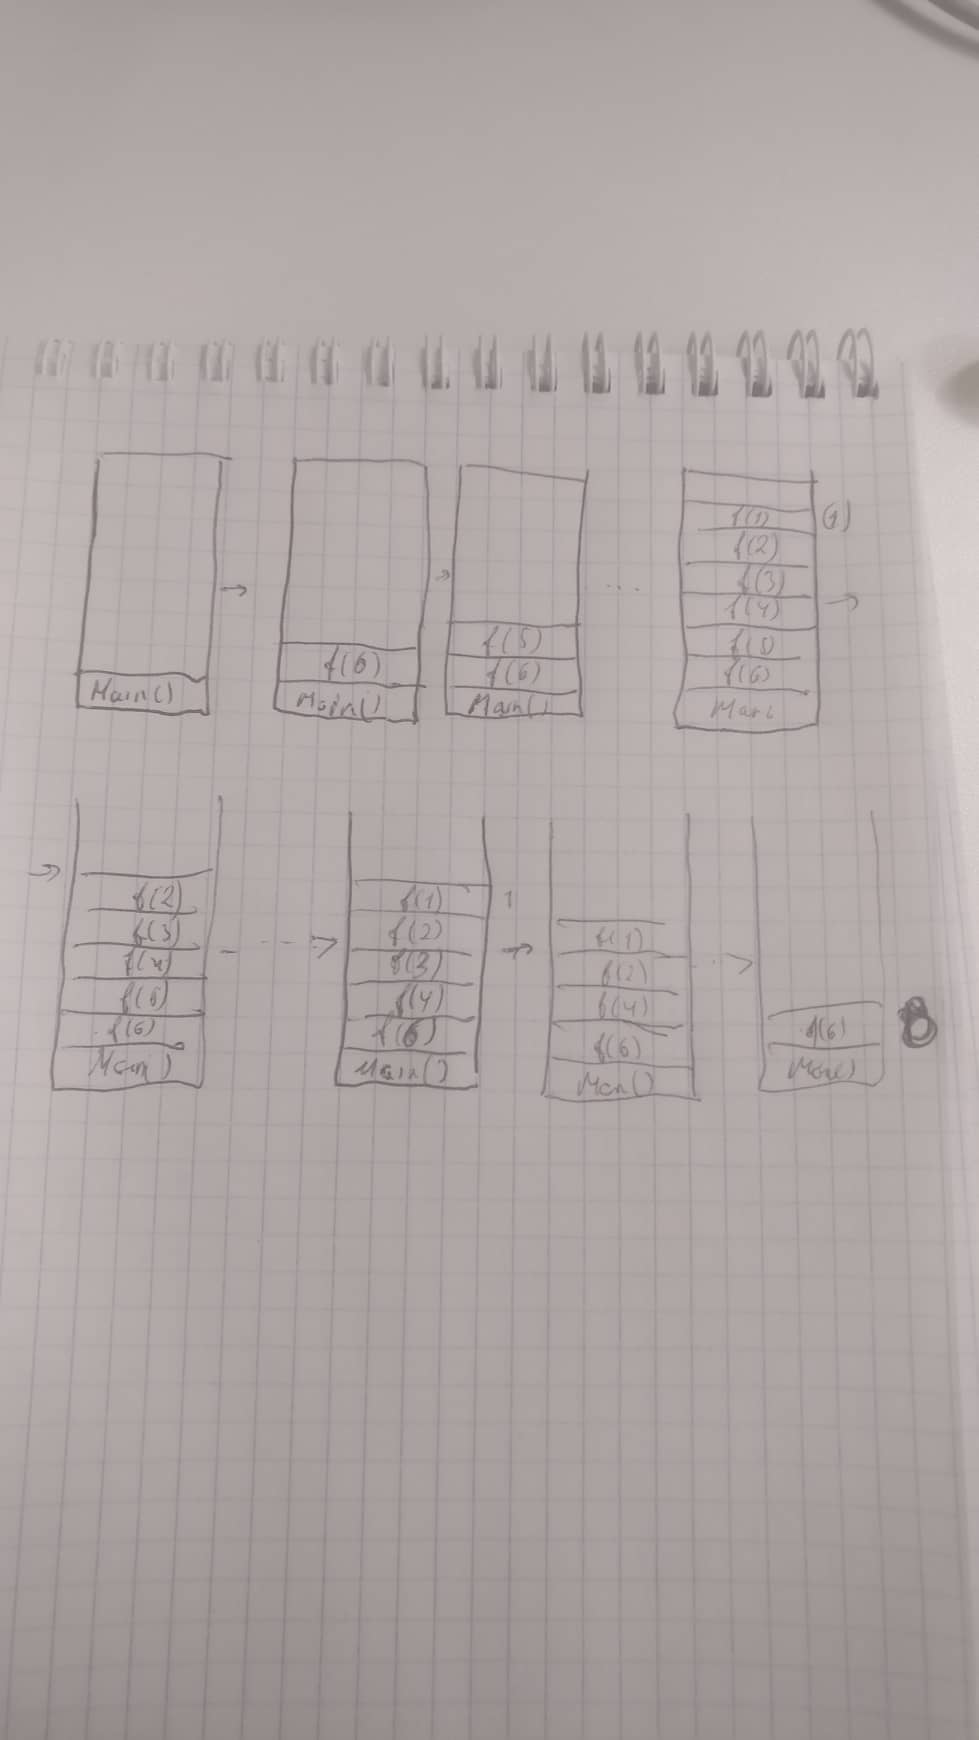 Main()
f(6)
Main()
f(5)
f(6)
Main()
...
f(1) (1)
f(2)
f(3)
f(4)
f(5)
f(6)
f(2)
f(3)
f(4)
f(5)
f(6)
Main()
f(1) 1
f(2)
f(3)
f(4)
f(6)
Main()
f(1)
f(2)
f(4)
f(6)
Man()
f(6) 8